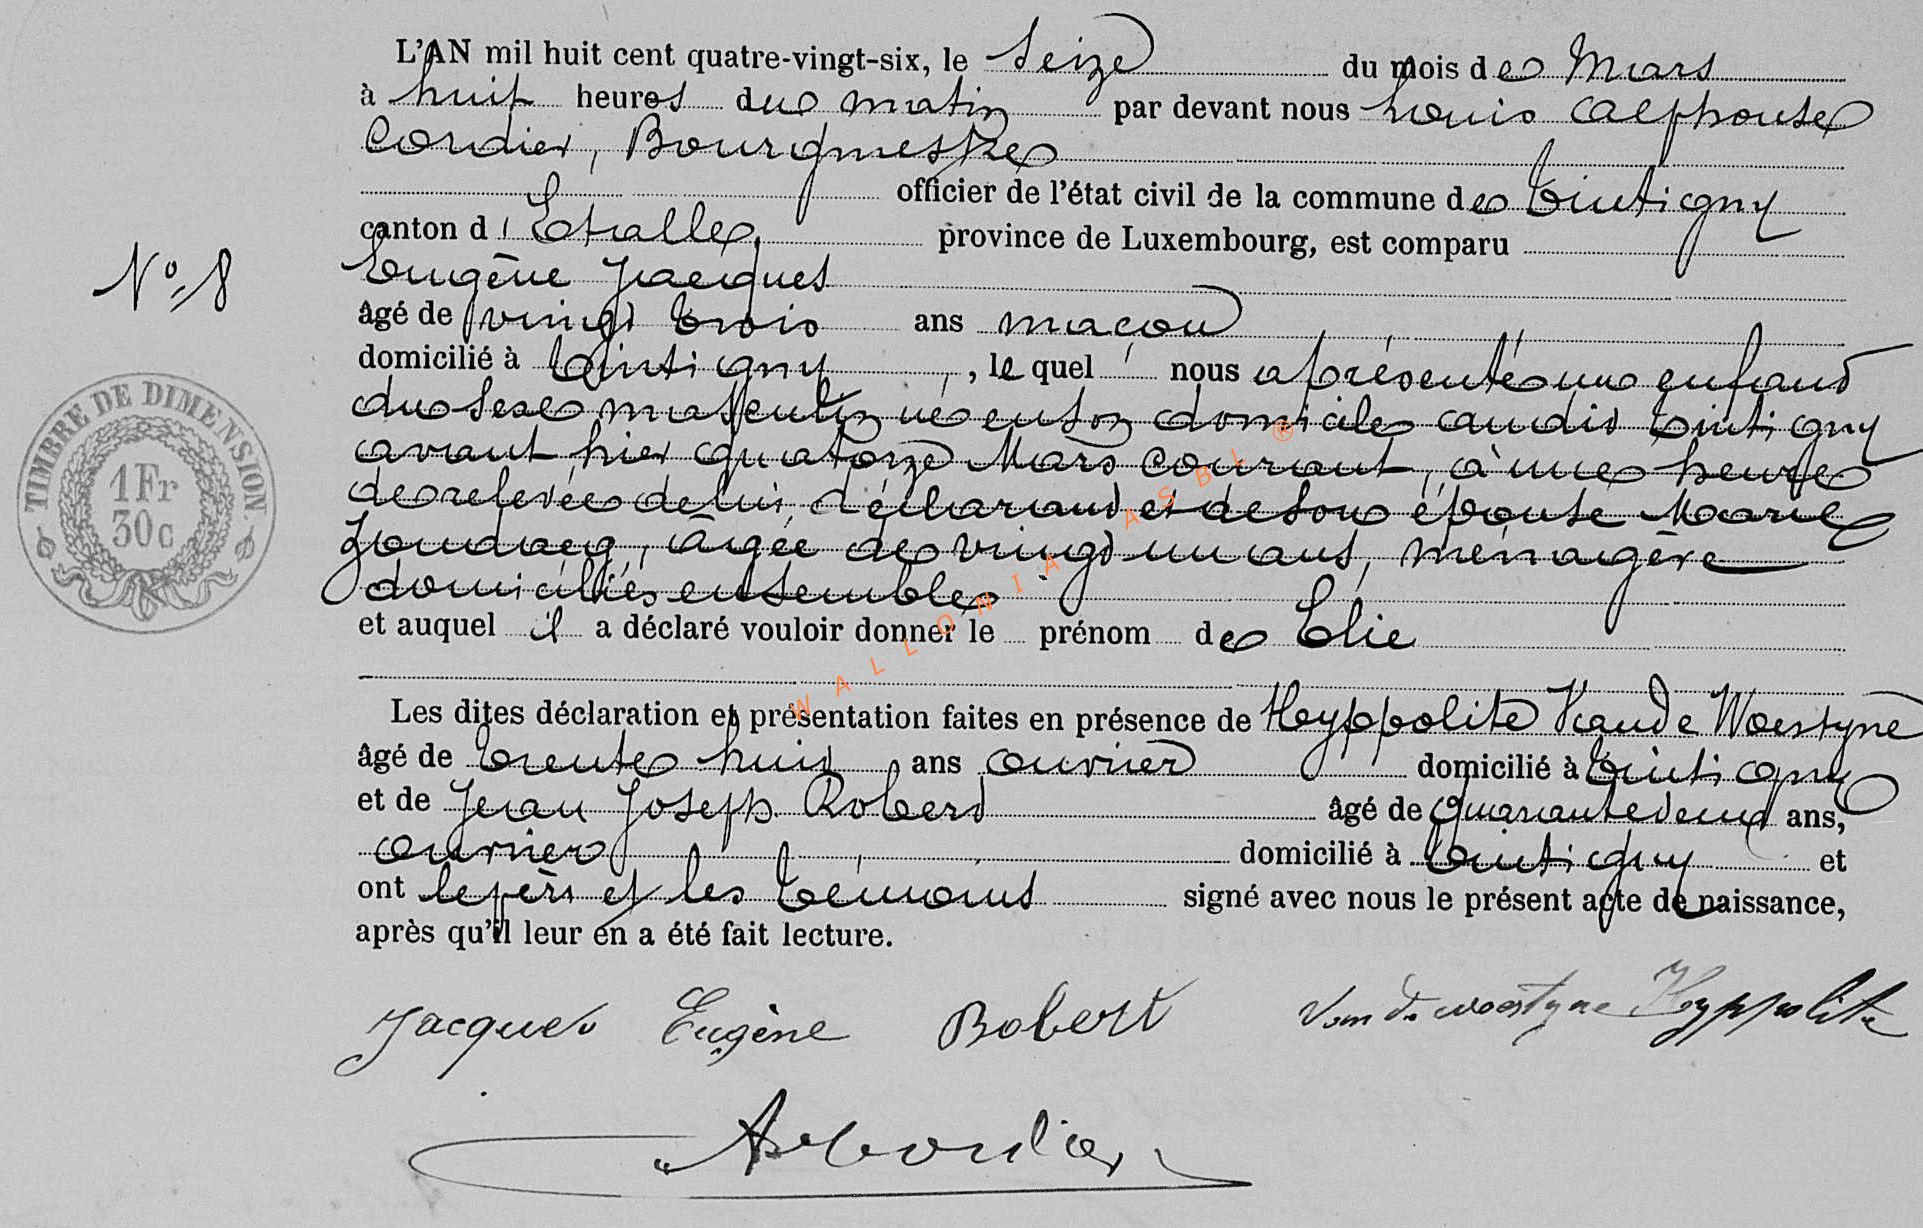 L'AN mil huit cent quatre-vingt-six, le Seize du mois de Mars
à huit heures du matin par devant nous Louis Alphonse
Cordier, Bourgmestre
officier de l'état civil de la commune de Tintigny
canton d'Etalle, province de Luxembourg, est comparu
Eugène Jacques
N° 8
âgé de vingt trois ans maçon
domicilié à Tintigny, lequel nous a présenté un enfant
du sexe masculin né en son domicile audit Tintigny
avant hier quatorze Mars courant, à une heure
de relevée de lui déclarant et de son épouse Marie
âgée de vingt un ans, ménagère
domiciliés ensemble
et auquel il a déclaré vouloir donner le prénom de Elie
Les dites déclaration et présentation faites en présence de Hyppolite Vande Woestyne
âgé de trente huit ans ouvrier domicilié à Tintigny
et de Jean Joseph Robert âgé de quarante deux ans,
ouvrier domicilié à Tintigny et
ont le père et les témoins signé avec nous le présent acte de naissance,
après qu'il leur en a été fait lecture.
Jacques Eugène Robert Van de woestyne Hyppolite
Cordier
TIMBRE DE DIMENSION.
1 Fr
30c
WALLONIA ASBL ®